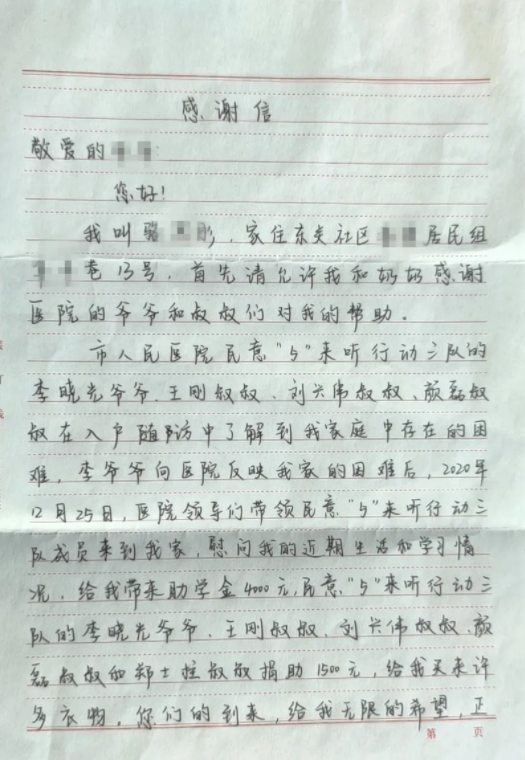 感谢信
敬爱的
您好!
我叫骆 彤，家住东关社区 居民组
巷13号，首先请允许我和奶奶感谢
医院的爷爷和叔叔们对我的帮助。
市人民医院民意"5"来听行动三队的
李晓光爷爷、王刚叔叔、刘兴伟叔叔、颜磊叔
叔在入户随访中了解到我家庭中存在的困
难，李爷爷向医院反映我家的困难后，2020年
12月25日，医院领导们带领民意"5"来听行动三
队成员来到我家，慰问我的近期生活和学习情
况，给我带来助学金4000元，民意"5"来听行动三
队的李晓光爷爷、王刚叔叔、刘兴伟叔叔、颜
磊叔叔和郑士拴叔叔捐助1500元，给我买来许
多衣物，你们的到来，给我无限的希望，正
第 页